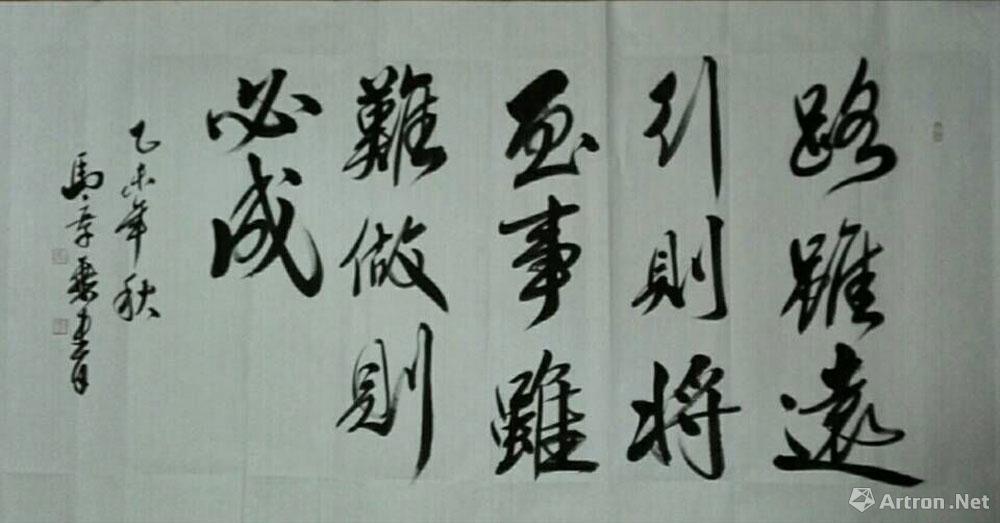 路雖遠
行則將
至事雖
難做則
必成
乙未年秋
馬章乘書
Artron.Net